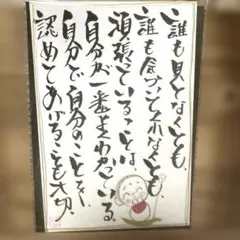 誰も見てなくても、
誰も気づいてくれなくても
頑張っていることは、
自分が一番よくわかっている。
自分で自分のことを、
認めてあげることも大切。